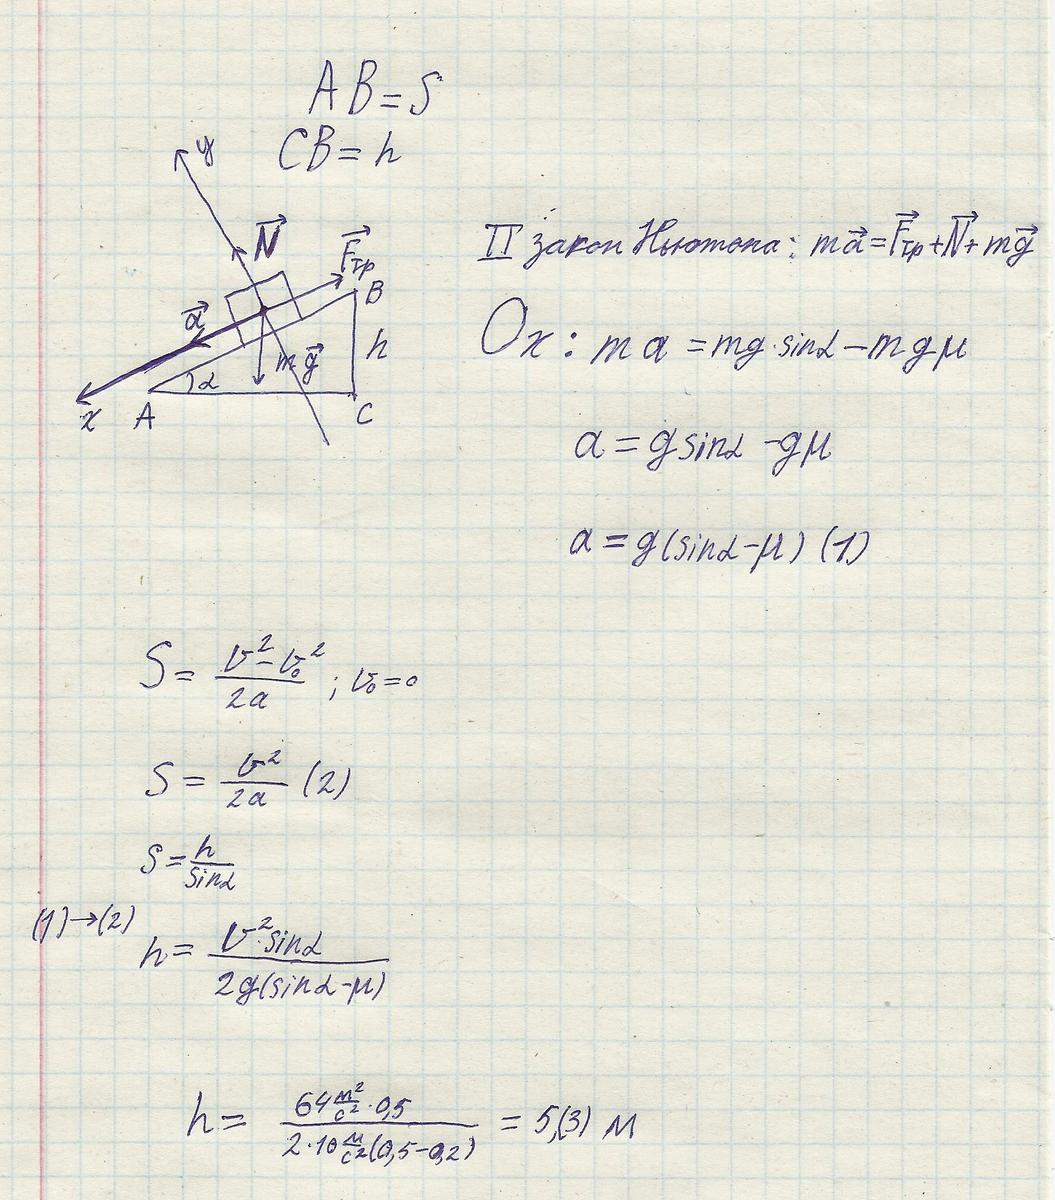 AB=S
CB=h
y
N⃗
F⃗тр
B
a⃗
h
mg⃗
α
x
A
C
II закон Ньютона: ma⃗=F⃗тр+N⃗+mg⃗
Ox: ma=mg·sinα-mgμ
a=gsinα-gμ
a=g(sinα-μ) (1)
S= (v²-v₀²)/(2a) ; v₀=0
S= v²/(2a) (2)
S= h/sinα
(1)→(2)
h= (v²·sinα)/(2g(sinα-μ))
h= (64 м²/с²·0,5)/(2·10 м/с²(0,5-0,2)) = 5,(3) м